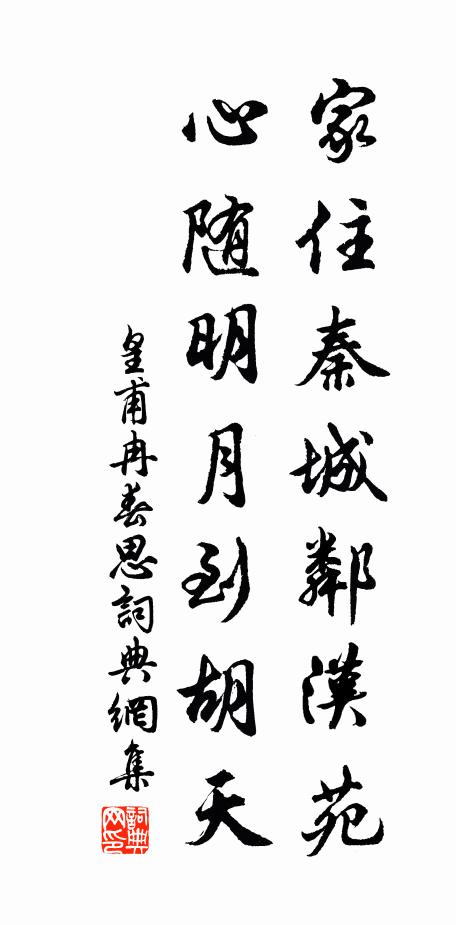 家住秦城鄰漢苑
心随明月到胡天
皇甫冉春思詞典網集
詞典网印